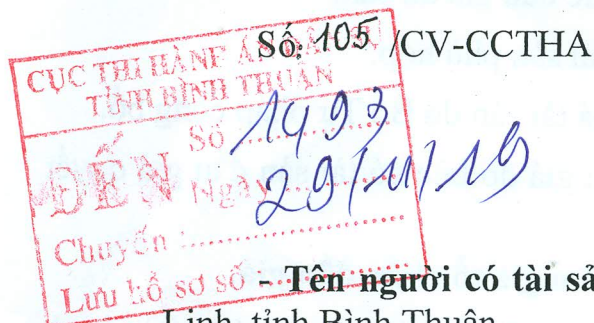 Số: 105 /CV-CCTHA
CỤC THI HÀNH ÁN DÂN SỰ
TỈNH BÌNH THUẬN
ĐẾN
Số 1493
Ngày 29/11/19
Chuyển :
Lưu hồ sơ số :
- Tên người có tài sả
Linh, tỉnh Bình Thuận